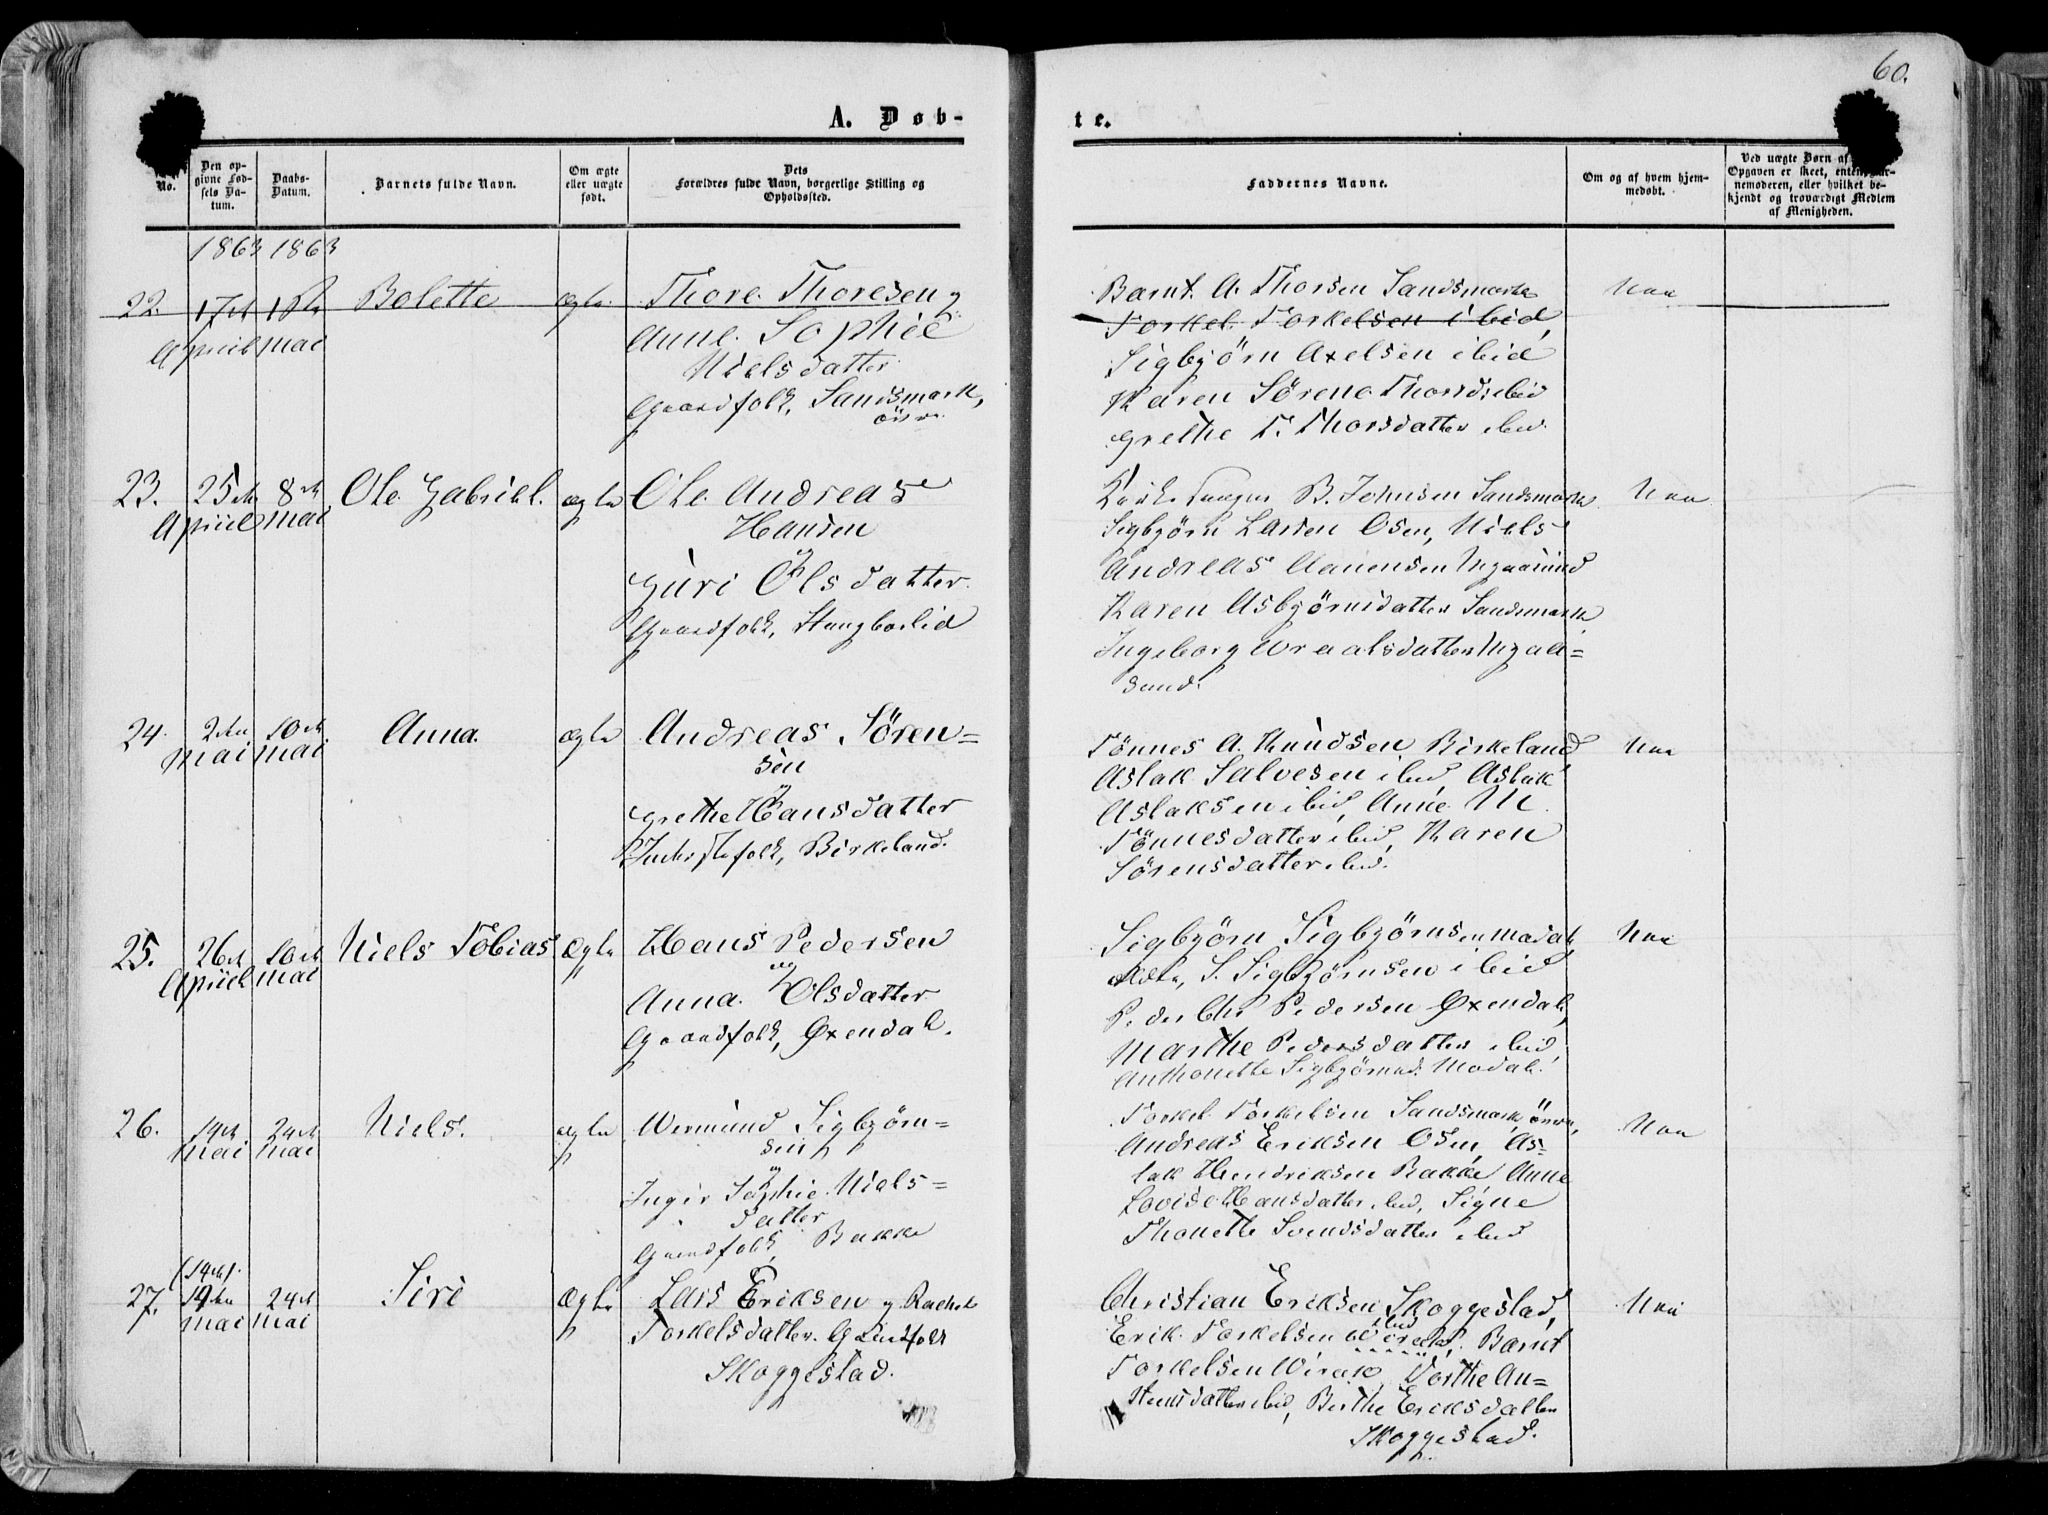 60.
A. Døb-
te.
No.
Den op-
givne Fød-
sels Da-
tum.
Daabs-
Datum.
Barnets fulde Navn.
Om ægte
eller uægte
født.
Dets
Forældres fulde Navn, borgerlige Stilling og
Opholdssted.
Faddernes Navne.
Om og af hvem hjem-
medøbt.
Ved uægte Børn af
Opgaven er skeet, enten
nemoderen, eller hvilket be-
kjendt og troværdigt Medlem
af Menigheden.
1863 1863
22. 17de 1ste Bolette ægte Thore Thoresen og
April Mai Anne Sophie
Nielsdatter
Gaardfolk, Sandsmark,
øvre
Barnt A. Thorsen Sandsmark
Torkel Torkelsen ibid,
Sigbjörn Axelsen ibid
Karen Sörene Thorsd: ibid
Grethe T. Thorsdatter ibid.
23. 25de 8de Ole Gabriel. ægte Ole Andreas
April Mai Hansen
og
Guri Olsdatter
Gaardfolk, Stangborlid
Kirkesanger B. Johnsen Sandsmark
Sigbjörn Larsen Osen, Niels
Andreas
Karen Asbjörnsdatter Sandsmark,
Ingeborg
sund.
24. 2den 10de Anna. ægte Andreas Sören=
Mai Mai sen
og
Grethe Hansdatter
Inderstefolk, Birkeland.
Tönnes A. Knudsen Birkeland
Aslak Salvesen ibid, Aslak
Aslaksen ibid, Anne M.
Tönnesdatter ibid, Karen
Sörensdatter ibid.
25. 26de 10de Niels Tobias ægte Hans Pedersen
April Mai og
Anna Olsdatter
Gaardfolk, Øxendal.
Sigbjörn Sigbjörnsen Modal,
S. Sigbjörnsen ibid
Peder Chr Pedersen Øxendal,
Marthe Pedersdatter ibid,
Anthonette Sigbjörnsd. Modal.
26. 14de 24de Niels. ægte Wermund Sigbjörn=
Mai Mai sen
og
Inger Sophie Niels=
datter
Gaardfolk, Bakke
Torkel Torkelsen Sandsmark, övre,
Andreas Eriksen Osen, As=
lak Hendriksen Bakke Anne
Lovise Hansdatter ibid, Signe
Thonette Svendsdatter ibid
(14de).
27. 24de Siri ægte Lars Eriksen og Rachel
Mai Mai Torkelsdatter. Gaardfolk
Skoggestad.
Christian Eriksen Skoggestad,
ibid
Erik Torkelsen Wirak, Barnt
Torkelsen Wirak, Dorthe An=
stensdatter ibid, Berthe Eriksdatter
Skoggestad.
Nei
Nei
Nei
Nei
Nei
Nei